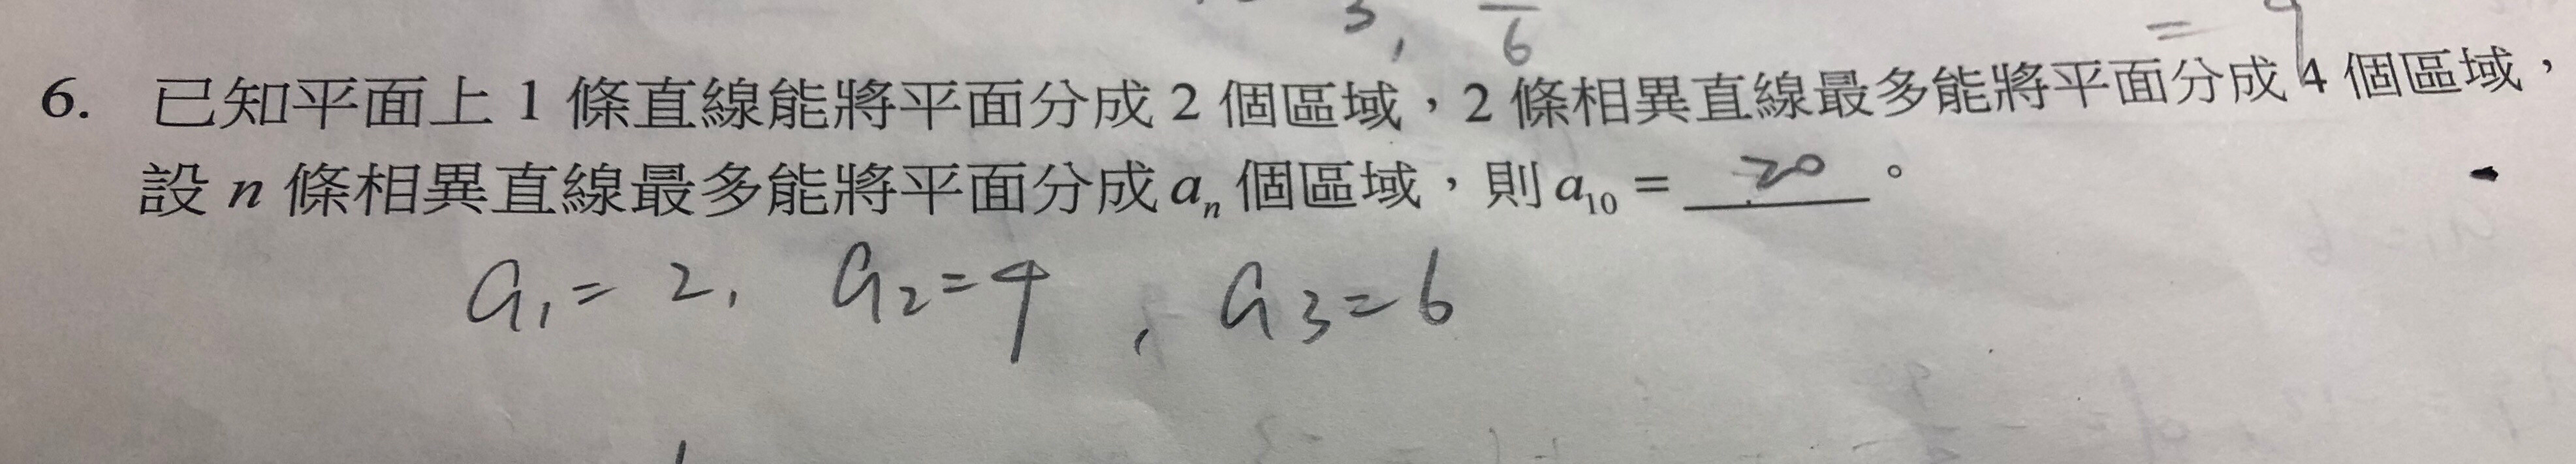 3, 6 =
6. 已知平面上 1 條直線能將平面分成 2 個區域，2 條相異直線最多能將平面分成 4 個區域，
設 n 條相異直線最多能將平面分成 aₙ 個區域，則 a₁₀ = 20 。
a₁ = 2, a₂ = 4, a₃ = 6